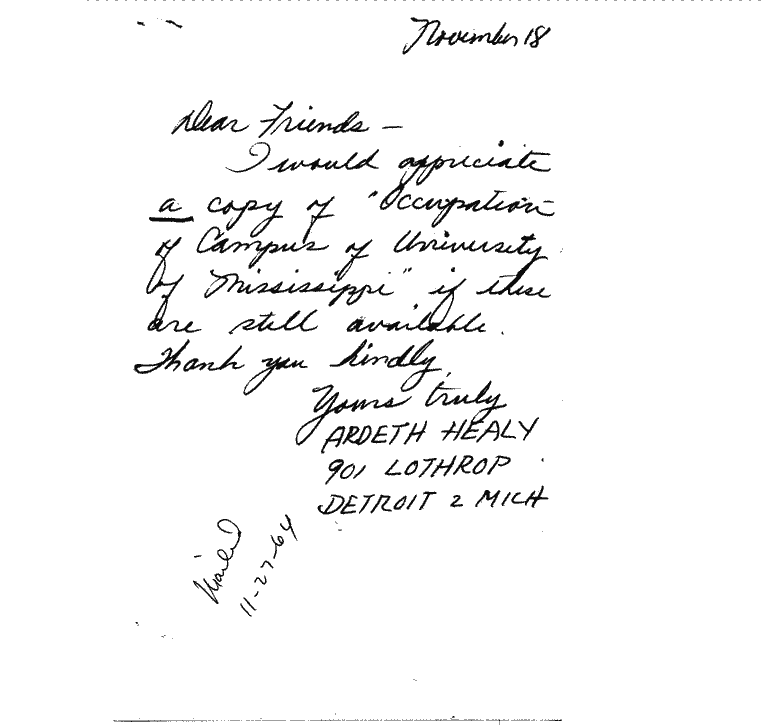 November 18
Dear Friends —
I would appriciate
a copy of "Occupation
of Campus of University
of Mississippi" if these
are still available.
Thank you kindly,
Yours truly
ARDETH HEALY
901 LOTHROP
DETROIT 2 MICH
Mailed
11-27-64